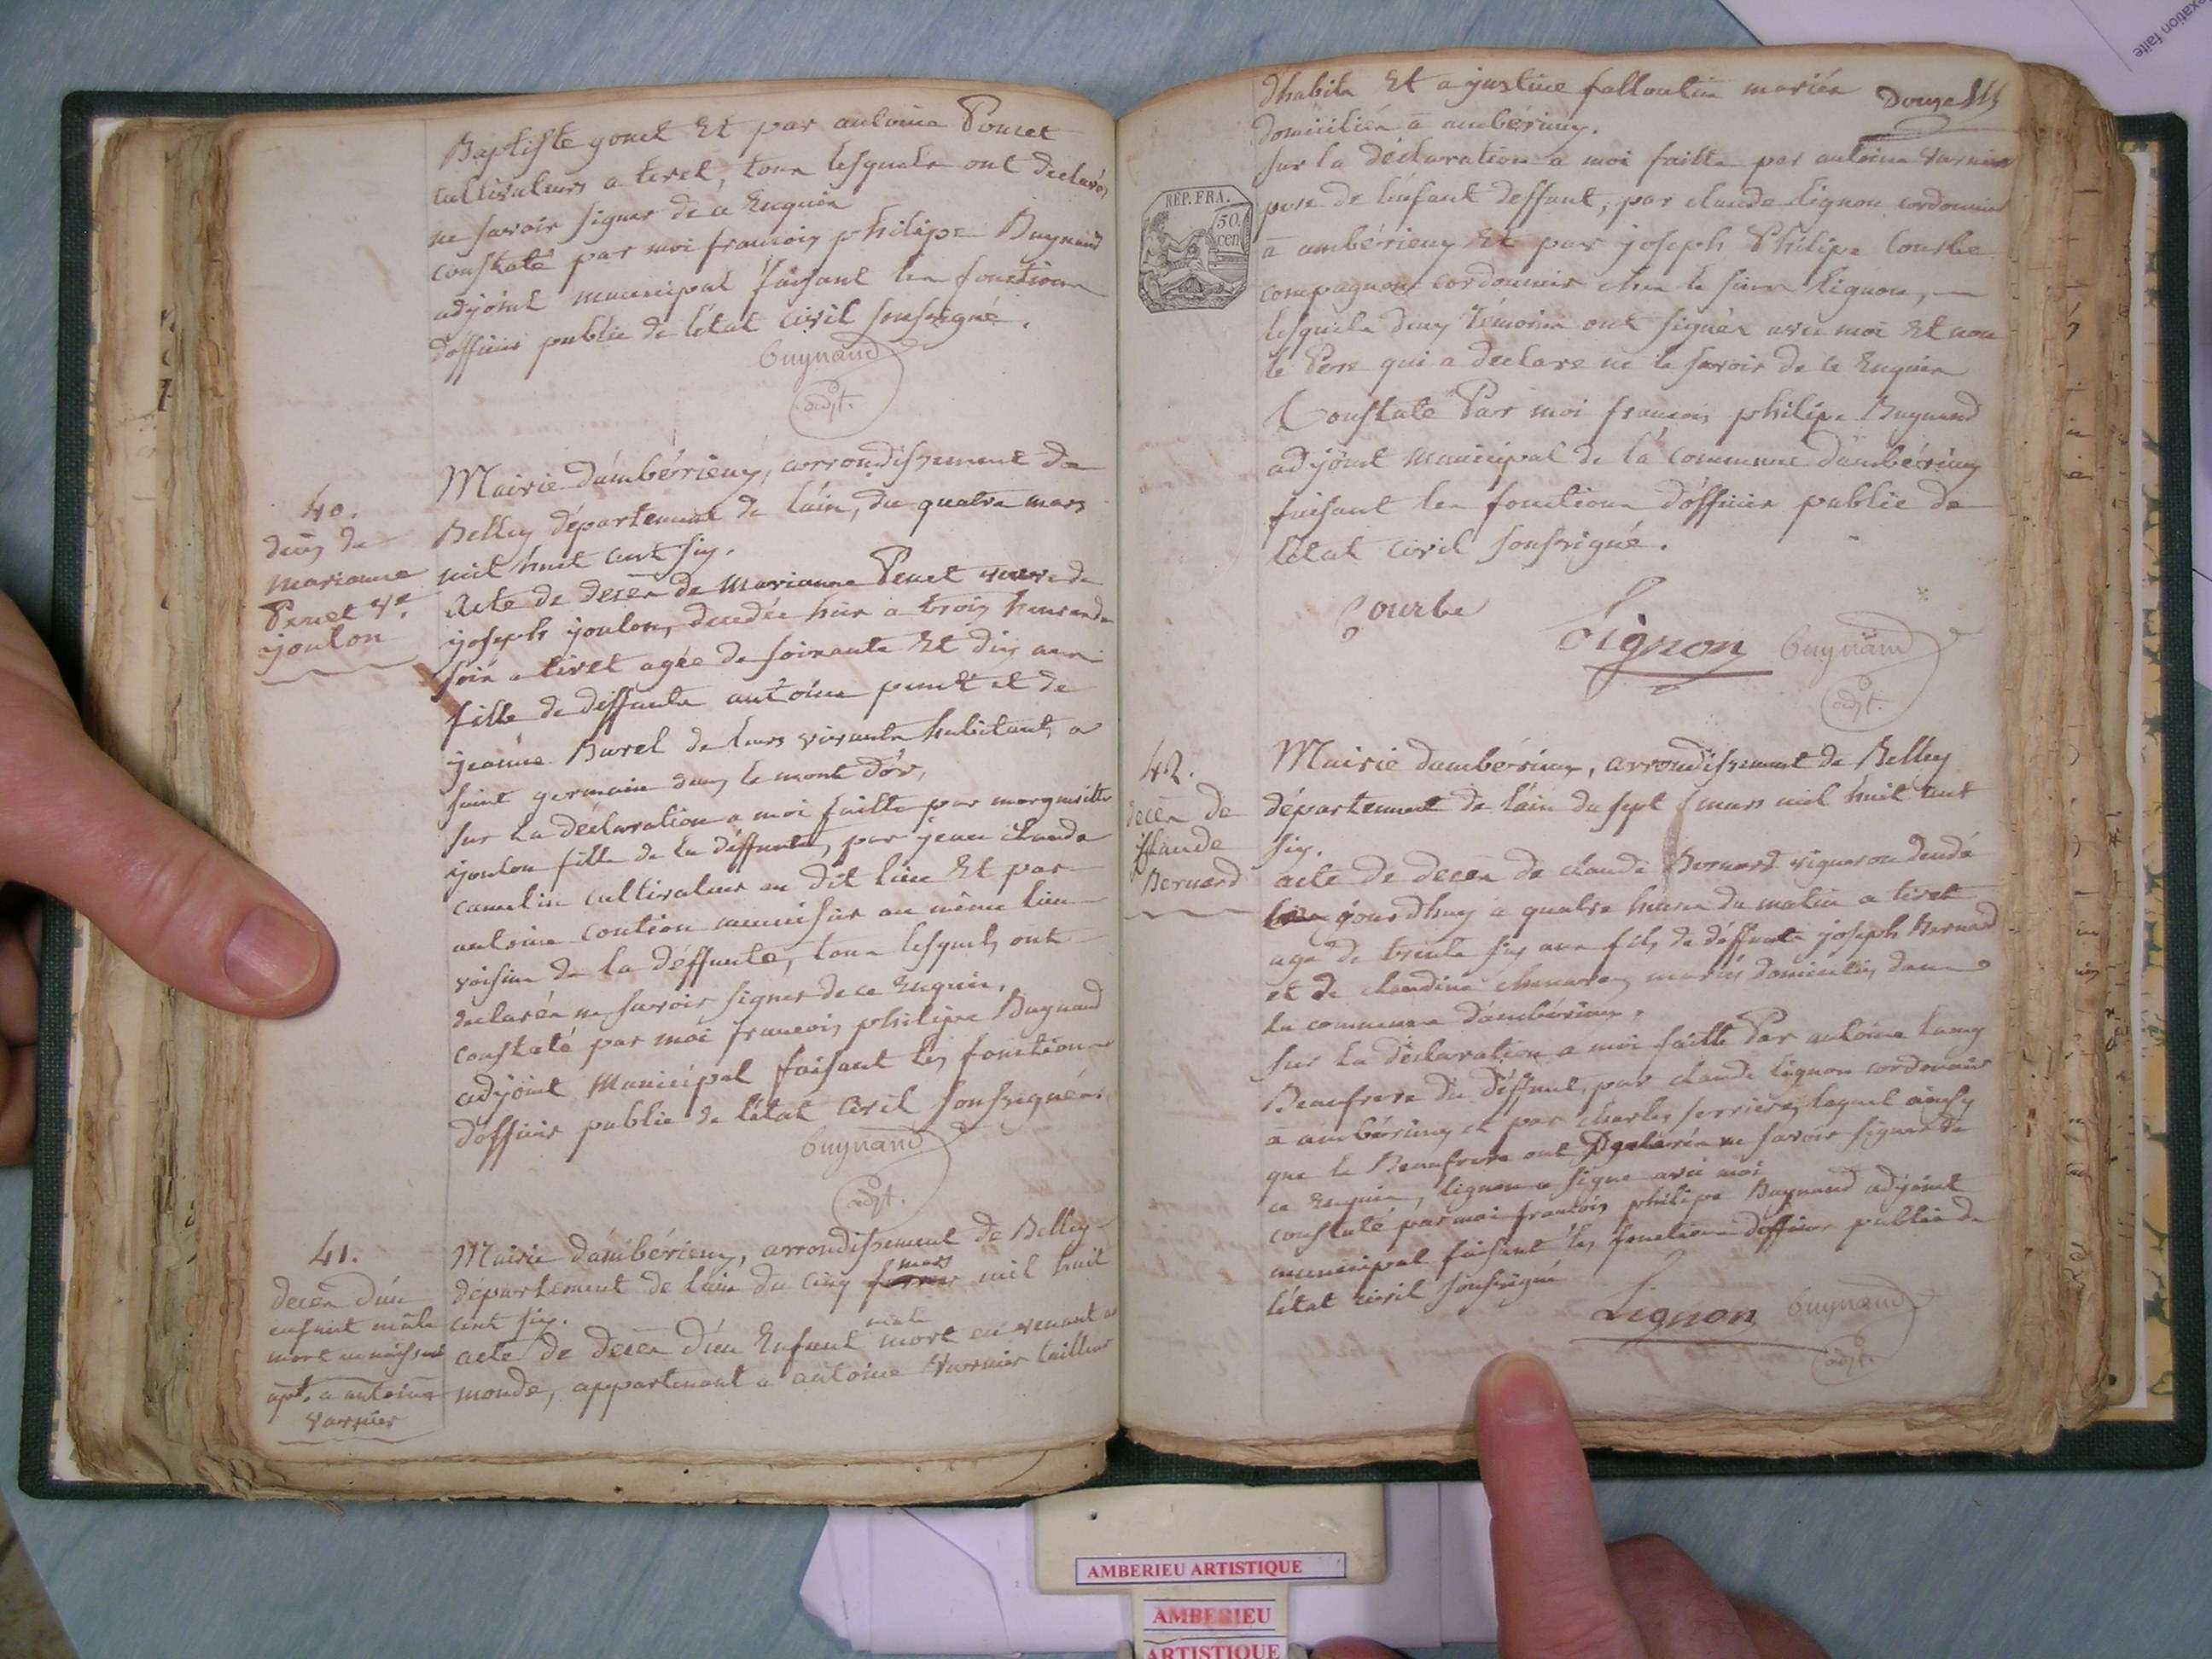 Baptiste gonet Et par antoine Poncet
cultivateurs a tiret, tous lesquels ont declarés
ne savoir signer de ce Enquis
constaté par moi francois philipe Buynand
adjoint municipal faisant les fonctions
d'officier public de l'état civil soussigné.
Buynand
adjt.
40.
deces de
marianne
Penet Ve.
joulon
Mairie d'ambérieux, arrondissement de
Belley département de l'ain, du quatre mars
mil huit cent six.
Acte de deces de Marianne Penet veuve de
joseph joulon, decedée hier a trois heures du
soir a tiret agée de soixante Et dix ans
fille de deffunts antoine penet et de
jeanne Burel de leurs vivants habitants a
saint germain dans le mont d'or,
sur la declaration a moi faitte par margueritte
joulon fille de la deffunte, par jean claude
camelin cultivateur au dit lieu Et par
antoine coution menuisier au même lieu
voisin de la deffunte, tous lesquels ont
declarés ne savoir signer de ce Enquis.
constaté par moi francois philipe Buynand
adjoint Municipal faisant les fonctions
d'officier public de l'état Civil soussignés.
Buynand
adjt.
41.
deces d'un
enfant mâle
mort en naissant
apt. a antoine
varnier
Mairie d'ambérieux, arrondissement de Belley
département de l'ain du cinq mars mil huit
cent six.
acte de deces d'un Enfant male mort en venant au
monde, appartenant a antoine Varnier tailleur
d'habits Et a justine falloutin mariés
domiciliés a ambérieux.
Douze
sur la déclaration a moi faitte par antoine Varnier
pere de l'enfant deffunt, par claude Lignon cordonnier
a ambérieux Et par joseph Philipe Courbe
compagnon cordonnier chez le sieur Lignon,
lesquels deux témoins ont signés avec moi Et non
le Pere qui a declare ne le savoir de ce Enquis
Constaté Par moi francois philipe Buynand
adjoint municipal de la commune d'ambérieux
faisant les fonctions d'officier public de
l'état civil soussigné.
REP. FRA.
50
cen
Courbe
Lignon
Buynand
adjt.
42.
deces de
claude
Bernard
Mairie d'ambérieux, arrondissement de Belley
département de l'ain du sept mars mil huit cent
six.
acte de deces de claude Bernard vigneron decedé
jourdhuy a quatre heures du matin a tiret
age de trente six ans fils de deffunts joseph Bernard
et de claudine mariés domiciliés dans
la commune d'ambérieux.
sur la déclaration a moi faitte Par antoine
Beaufrere du deffunt, par claude Lignon cordonnier
a ambérieux et par charles ferriere, lequel ainsy
que le Beaufrere ont declarés ne savoir signer de
ce Enquis, lignon a signé avec moi
constaté par moi francois philipe Buynand adjoint
municipal faisant les fonctions d'officier public de
l'état civil soussigné
Lignon
Buynand
adjt.
exation faite
AMBERIEU ARTISTIQUE
AMBERIEU
ARTISTIQUE